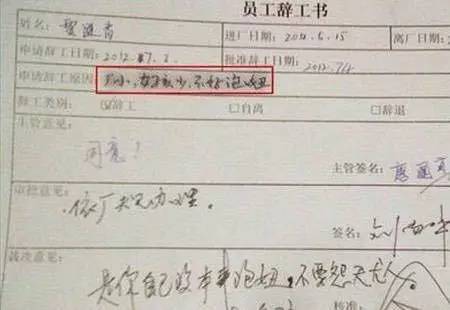 员工辞工书
姓名: 进厂日期: 2011.6.15 离厂日期:
申请辞工日期: 2012.7.2. 批准辞工日期: 2012.7/2
申请辞工原因: 厂小,女孩少,不好泡妞
辞工类别: ☑辞工 ☐自离 ☐辞退
主管意见:
同意!
主管签名:
审批意见:
依厂规办理。
签名:
裁决意见:
是你自己没本事泡妞,不要怨天尤人。
核准: